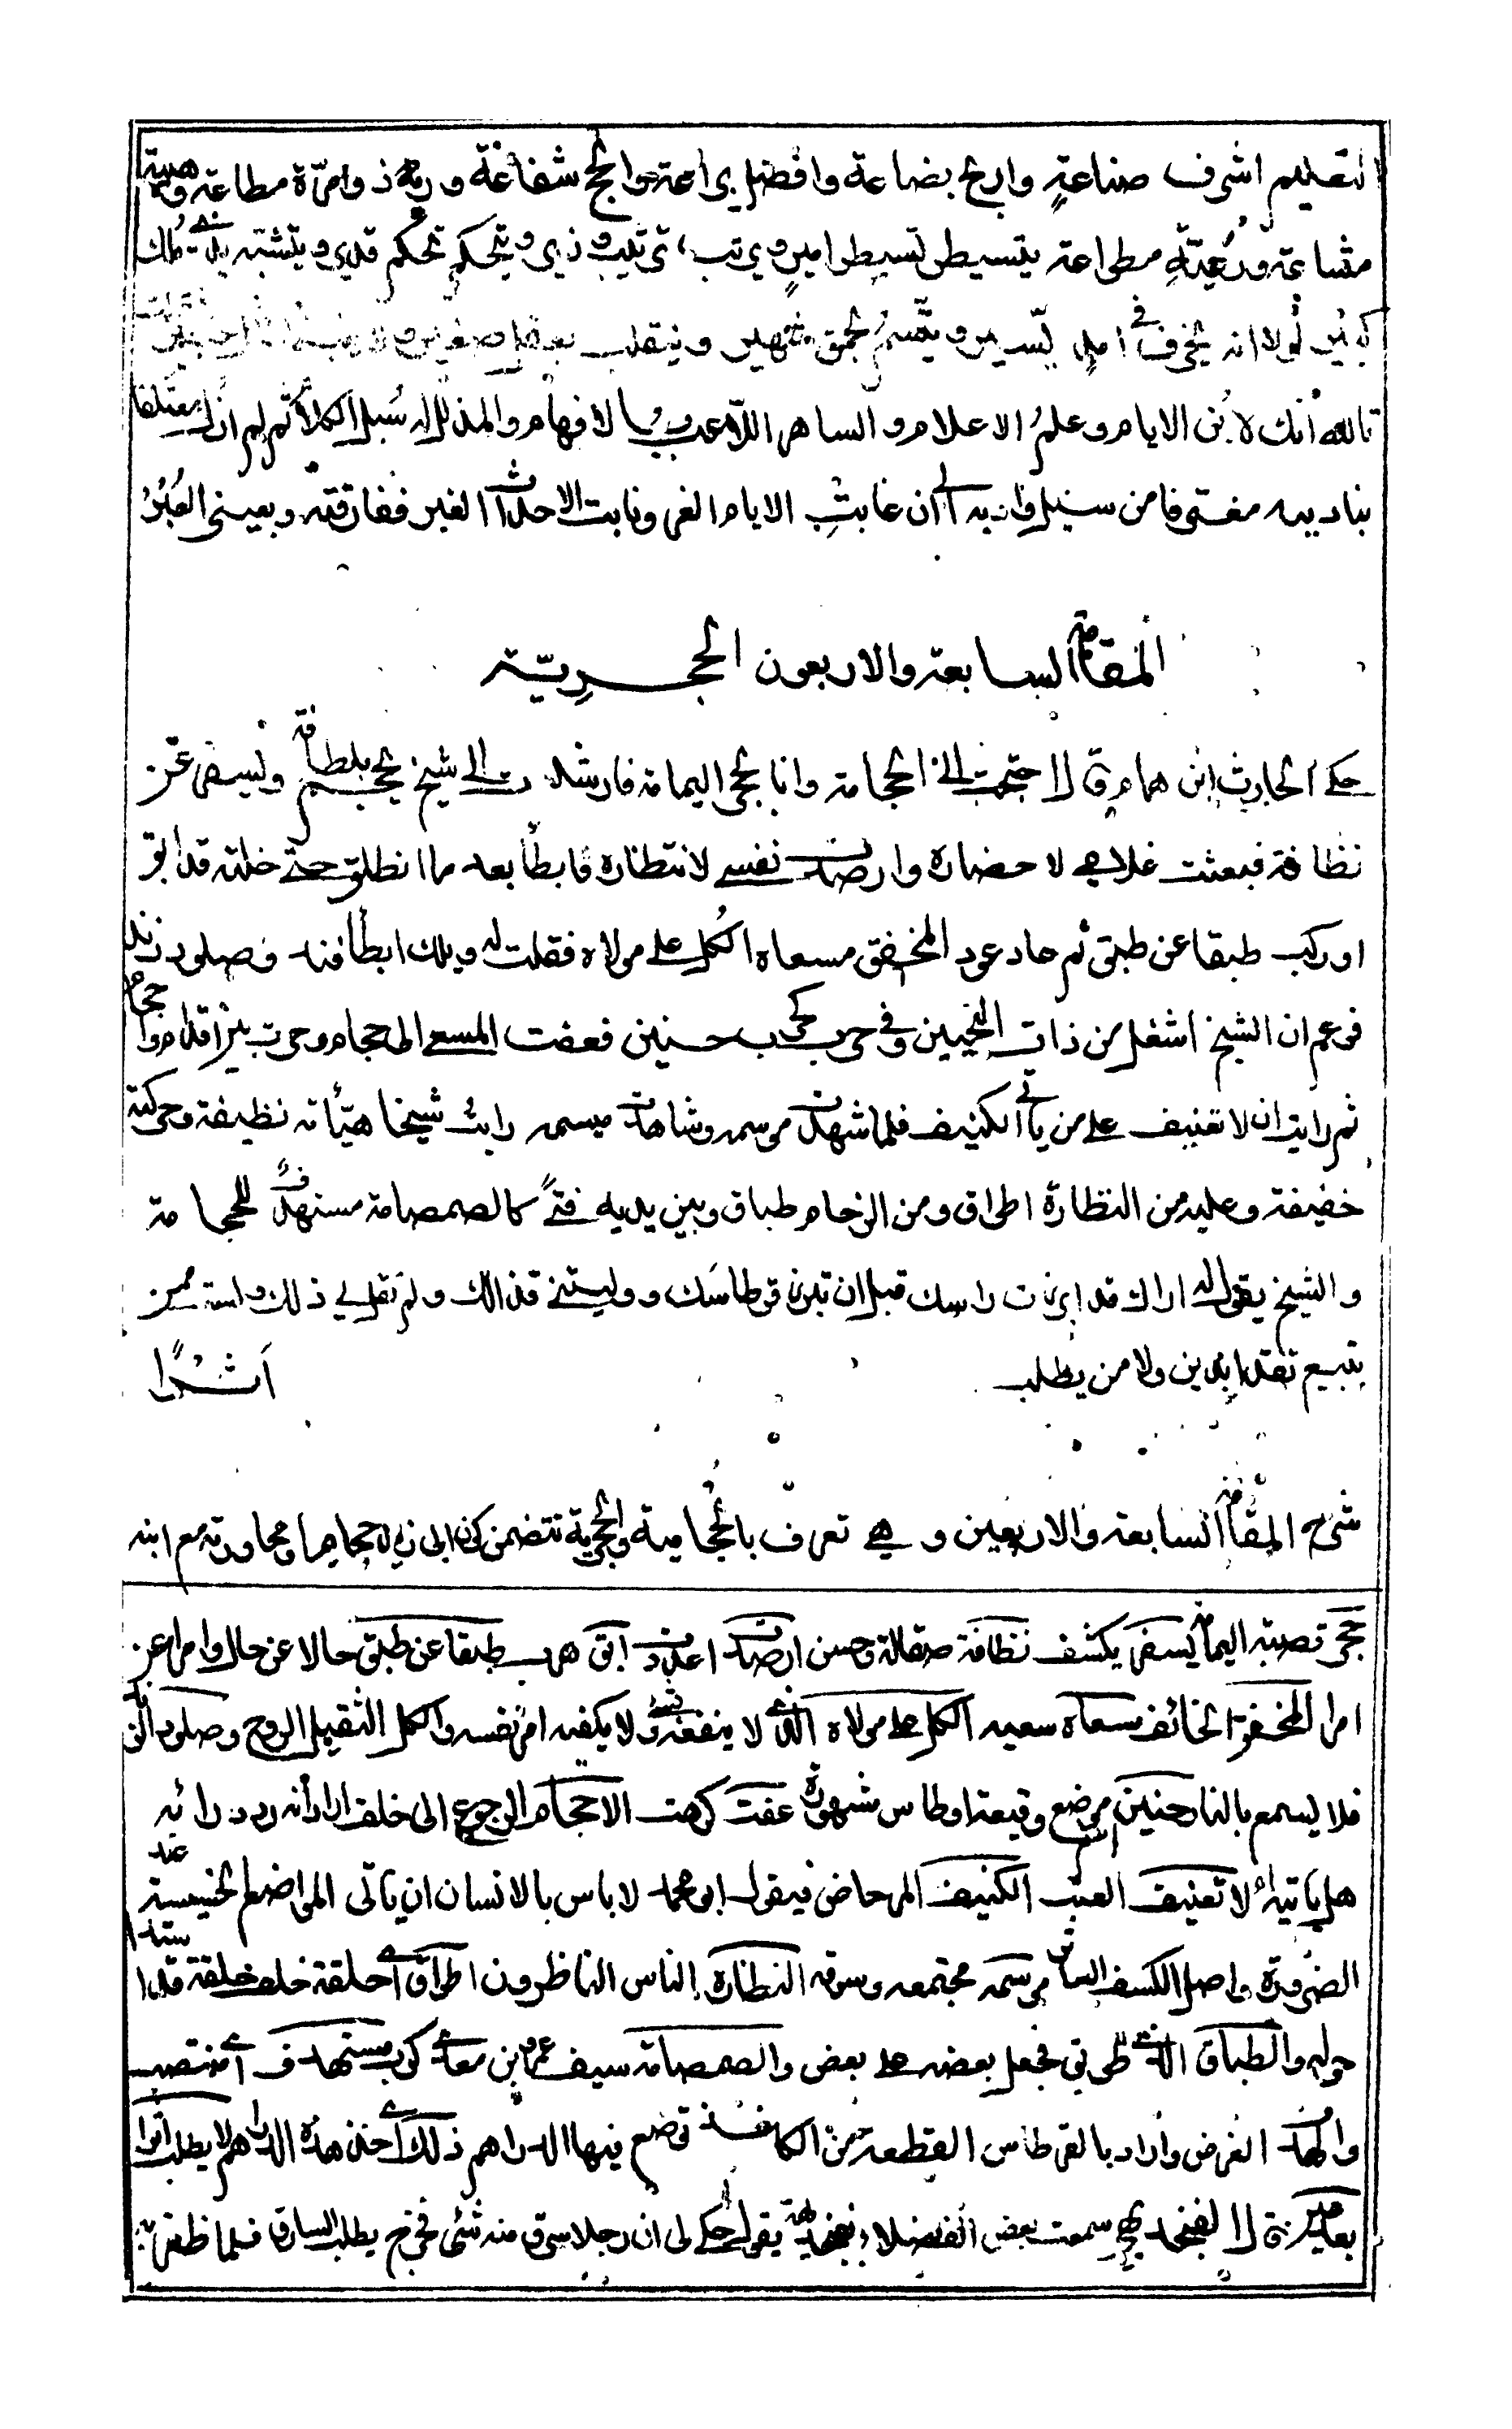 التعليم اشرف صناعة واربح بضاعة وافضل براعة وانجح شفاعة وربه ذو امرة مطاعة وهيبة
مشاعة ورعية مطواعة يتسيطر تسيطر امير ويرتب ترتيب وزير ويتحكم تحكم قدير ويتشبه بذي ملك
كبير لولا انه يخرف في امد يسير ويتسم بحمق شهير ويتقلب بعقل صغير ولا ينبئك مثل خبير
تالله انك لابن الايام وعلم الاعلام والساهر اللاعب بالافهام والمذلل له سبل الكلام ثم لم ازل معتكفا
بناديه مغترفا من سيل واديه الى ان غابت الايام الغر ونابت الاحداث الغبر ففارقته وبعيني العبر
المقامة السابعة والاربعون الحجرية
حكى الحارث ابن همام قال احتجت الى الحجامة وانا بحجر اليمامة فارشدت الى شيخ يحجم بلطافة ويسفر عن
نظافة فبعثت غلامي لاحضاره وارصدت نفسي لانتظاره فابطأ بعد ما انطلق حتى خلته قد ابق
او ركب طبقا عن طبق ثم عاد عود المخفق مسعاه الكل على مولاه فقلت له ويلك ابطأ فند وصلود زند
فزعم ان الشيخ اشغل من ذات النحيين وفي حرب كحرب حنين فعفت المسعى الى حجام وحرت بين اقدام واحجام
ثم رايت ان لا تعنيف على من ياتي الكنيف فلما شهدت موسمه وشاهدت ميسمه رايت شيخا هيأته نظيفة وحركته
خفيفة وعليه من النظارة اطواق ومن الزحام طباق وبين يديه فتى كالصمصامة مستهدف للحجامة
والشيخ يقول له اراك قد ابرزت راسك قبل ان تبرز قرطاسك ووليتني قذالك ولم تقل لي ذلك ولست ممن
يبيع نقدا بدين ولا من يطلب اثرا
شرح المقامة السابعة والاربعين وهي تعرف بالحجامية والحجرية تتضمن كون ابي زيد حجاما ومحاورته مع ابنه
حجر قصبة اليمامة يسفر يكشف نظافة صقالة وحسن ارصدت اعددت ابق هرب طبقا عن طبق حالا عن حال وامرا عن
امر المخفق الخائف مسعاه سعيه الكل على مولاه الذي لا ينفعه بشئ ولا يكفيه امر نفسه والكل الثقيل الروح وصلود الزند
فلا يسمع بالنار حنين موضع وقيعة اوطاس مشهورة عفت كرهت الاحجام الرجوع الى خلف اراد انه ردد رائه
هل ياتيه ام لا تعنيف العتب الكنيف المرحاض فيقول ابو محمد لا باس بالانسان ان ياتي المواضع الخسيسة عند
الضرورة واصل الكنيف الساتر موسمه مجتمعه وسوقه النظارة الناس الناظرون اطواق اي حلقة خلف حلقة قد استداروا
حوله والطباق الذي طوبق فجعل بعضه على بعض والصمصامة سيف عمرو بن معدي كرب مستهدف اي منتصب
والهدف الغرض واراد بالقرطاس القطعة من الكاغذ توضع فيها الدراهم ذلك اي خذ هذه الدراهم لا يطلب اثرا
بعد عين قال الفنجديهي سمعت بعض الفضلاء بفنجديه يقول حكي لي ان رجلا سرق منه شئ فخرج يطلب السارق فلما ظفر به